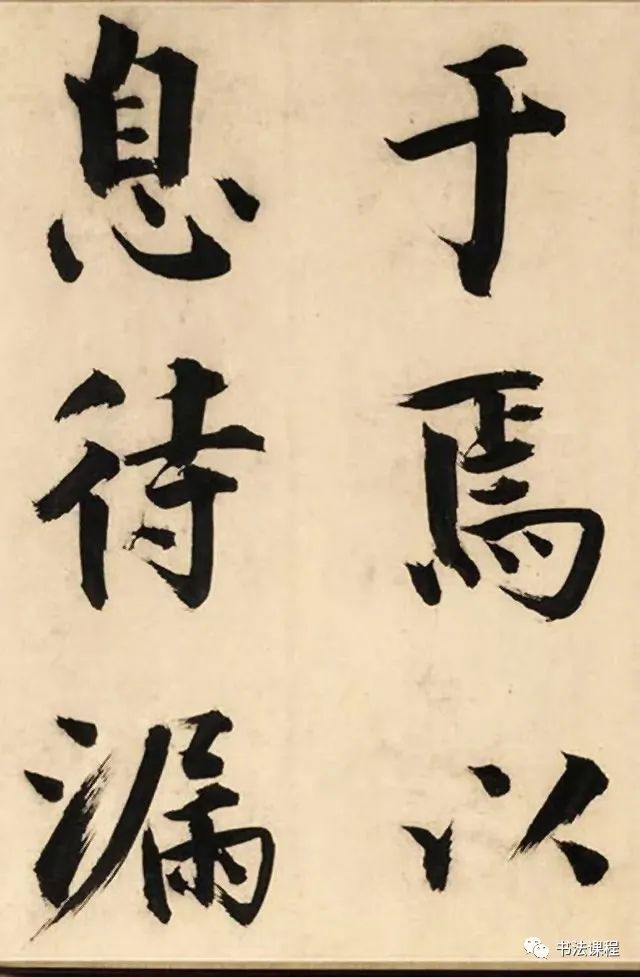 于焉以
息待漏
书法课程